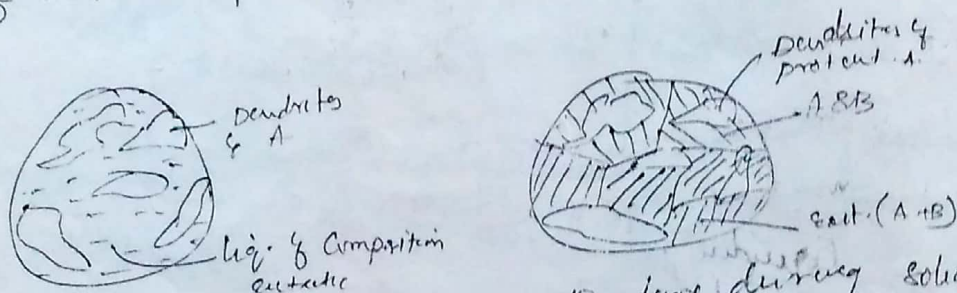 Dendrites
of A
Liq. of Composition
eutectic
Dendrites of
A & B
Eut. (A+B)
during